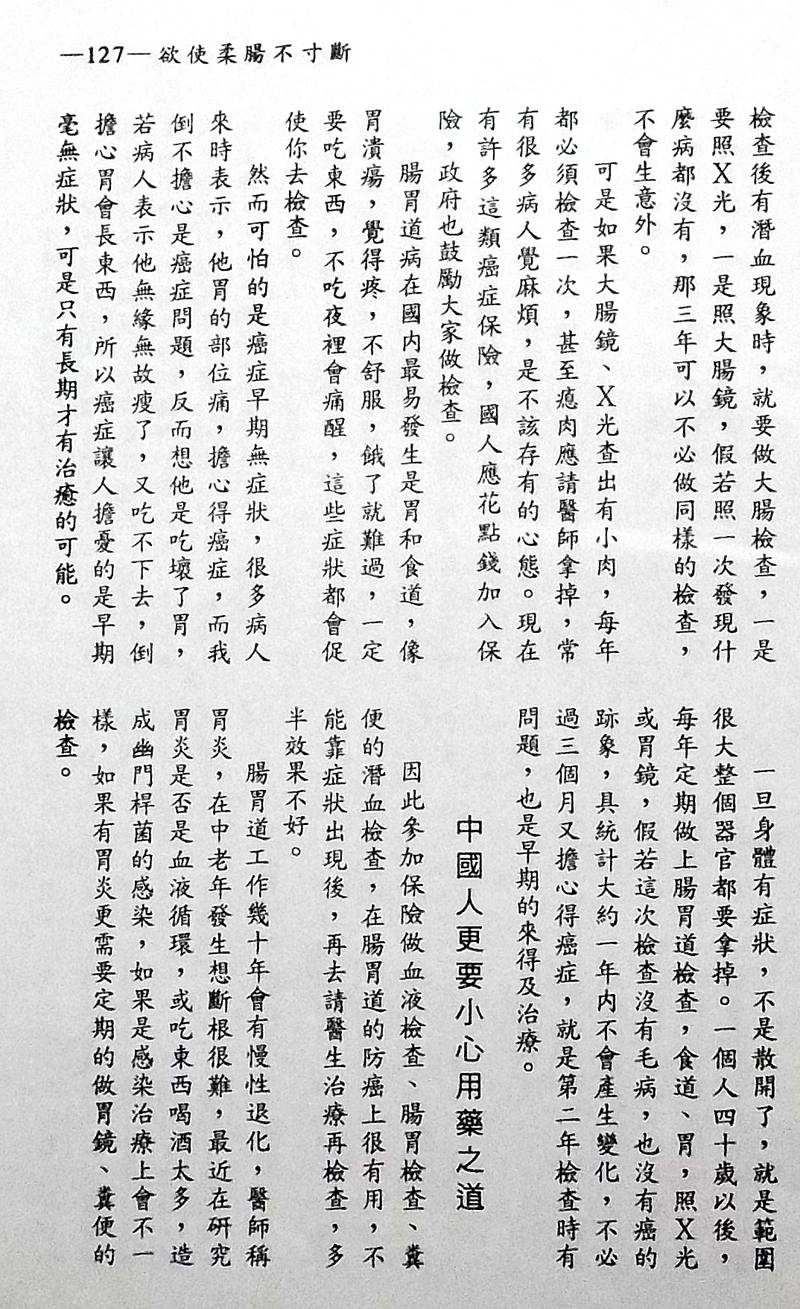 —127—欲使柔腸不寸斷
檢查後有潛血現象時，就要做大腸檢查，一是
要照X光，一是照大腸鏡，假若照一次發現什
麼病都沒有，那三年可以不必做同樣的檢查，
不會生意外。
可是如果大腸鏡、X光查出有小肉，每年
都必須檢查一次，甚至瘜肉應請醫師拿掉，常
有很多病人覺麻煩，是不該存有的心態。現在
有許多這類癌症保險，國人應花點錢加入保
險，政府也鼓勵大家做檢查。
腸胃道病在國內最易發生是胃和食道，像
胃潰瘍，覺得疼，不舒服，餓了就難過，一定
要吃東西，不吃夜裡會痛醒，這些症狀都會促
使你去檢查。
然而可怕的是癌症早期無症狀，很多病人
來時表示，他胃的部位痛，擔心得癌症，而我
倒不擔心是癌症問題，反而想他是吃壞了胃，
若病人表示他無緣無故瘦了，又吃不下去，倒
擔心胃會長東西，所以癌症讓人擔憂的是早期
毫無症狀，可是只有長期才有治癒的可能。
一旦身體有症狀，不是散開了，就是範圍
很大整個器官都要拿掉。一個人四十歲以後，
每年定期做上腸胃道檢查，食道、胃，照X光
或胃鏡，假若這次檢查沒有毛病，也沒有癌的
跡象，具統計大約一年內不會產生變化，不必
過三個月又擔心得癌症，就是第二年檢查時有
問題，也是早期的來得及治療。
中國人更要小心用藥之道
因此參加保險做血液檢查、腸胃檢查、糞
便的潛血檢查，在腸胃道的防癌上很有用，不
能靠症狀出現後，再去請醫生治療再檢查，多
半效果不好。
腸胃道工作幾十年會有慢性退化，醫師稱
胃炎，在中老年發生想斷根很難，最近在研究
胃炎是否是血液循環，或吃東西喝酒太多，造
成幽門桿菌的感染，如果是感染治療上會不一
樣，如果有胃炎更需要定期的做胃鏡、糞便的
檢查。